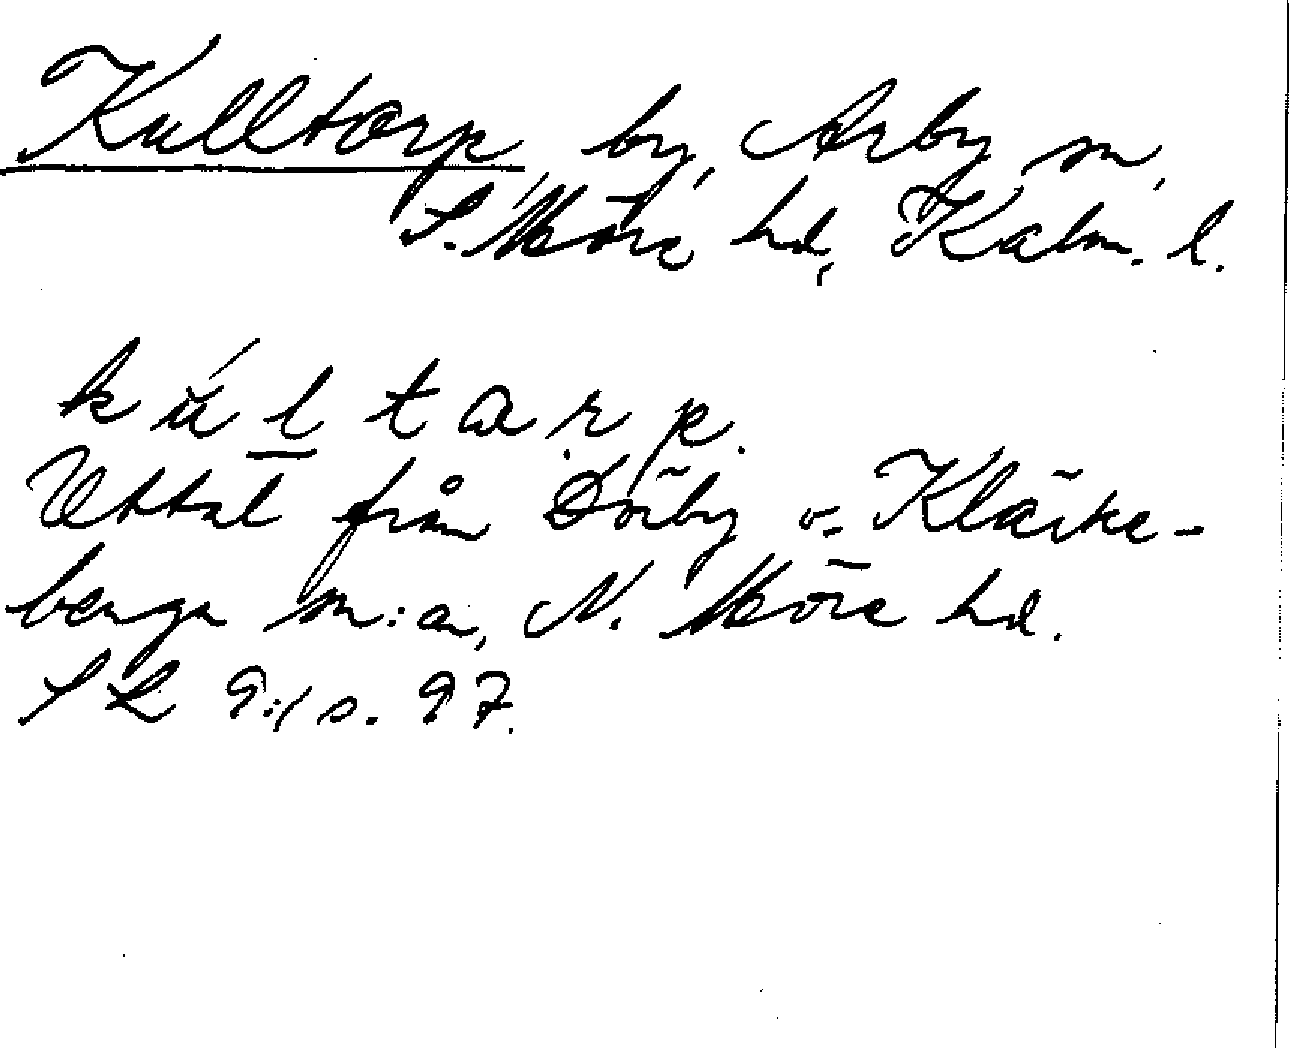 Kulltorp, by, Arby sn,
S. Möre hd, Kalm. l.
kúltarp.
Uttal från Dörby o. Kläcke-
berga sn:ar, N. Möre hd.
SL 9:1 s. 97.